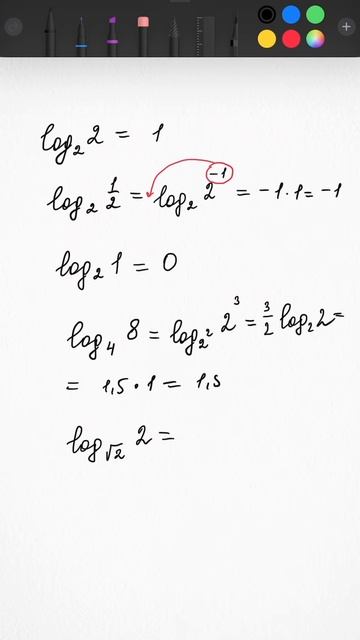 log₂ 2 = 1
log₂ 1/2 = log₂ 2⁻¹ = -1 · 1 = -1
log₂ 1 = 0
log₄ 8 = log₂² 2³ = 3/2 log₂ 2 =
= 1,5 · 1 = 1,5
log√2 2 =